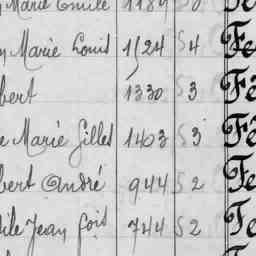 Marie Emile 1189 S 6 Fe
Marie Louis 1524 S 4 Fe
bert 1330 S 3 Fé
e Marie Gilles 1403 S 3 Fé
bert André 944 S 2 Fe
ile Jean fois 744 S 2 Fe